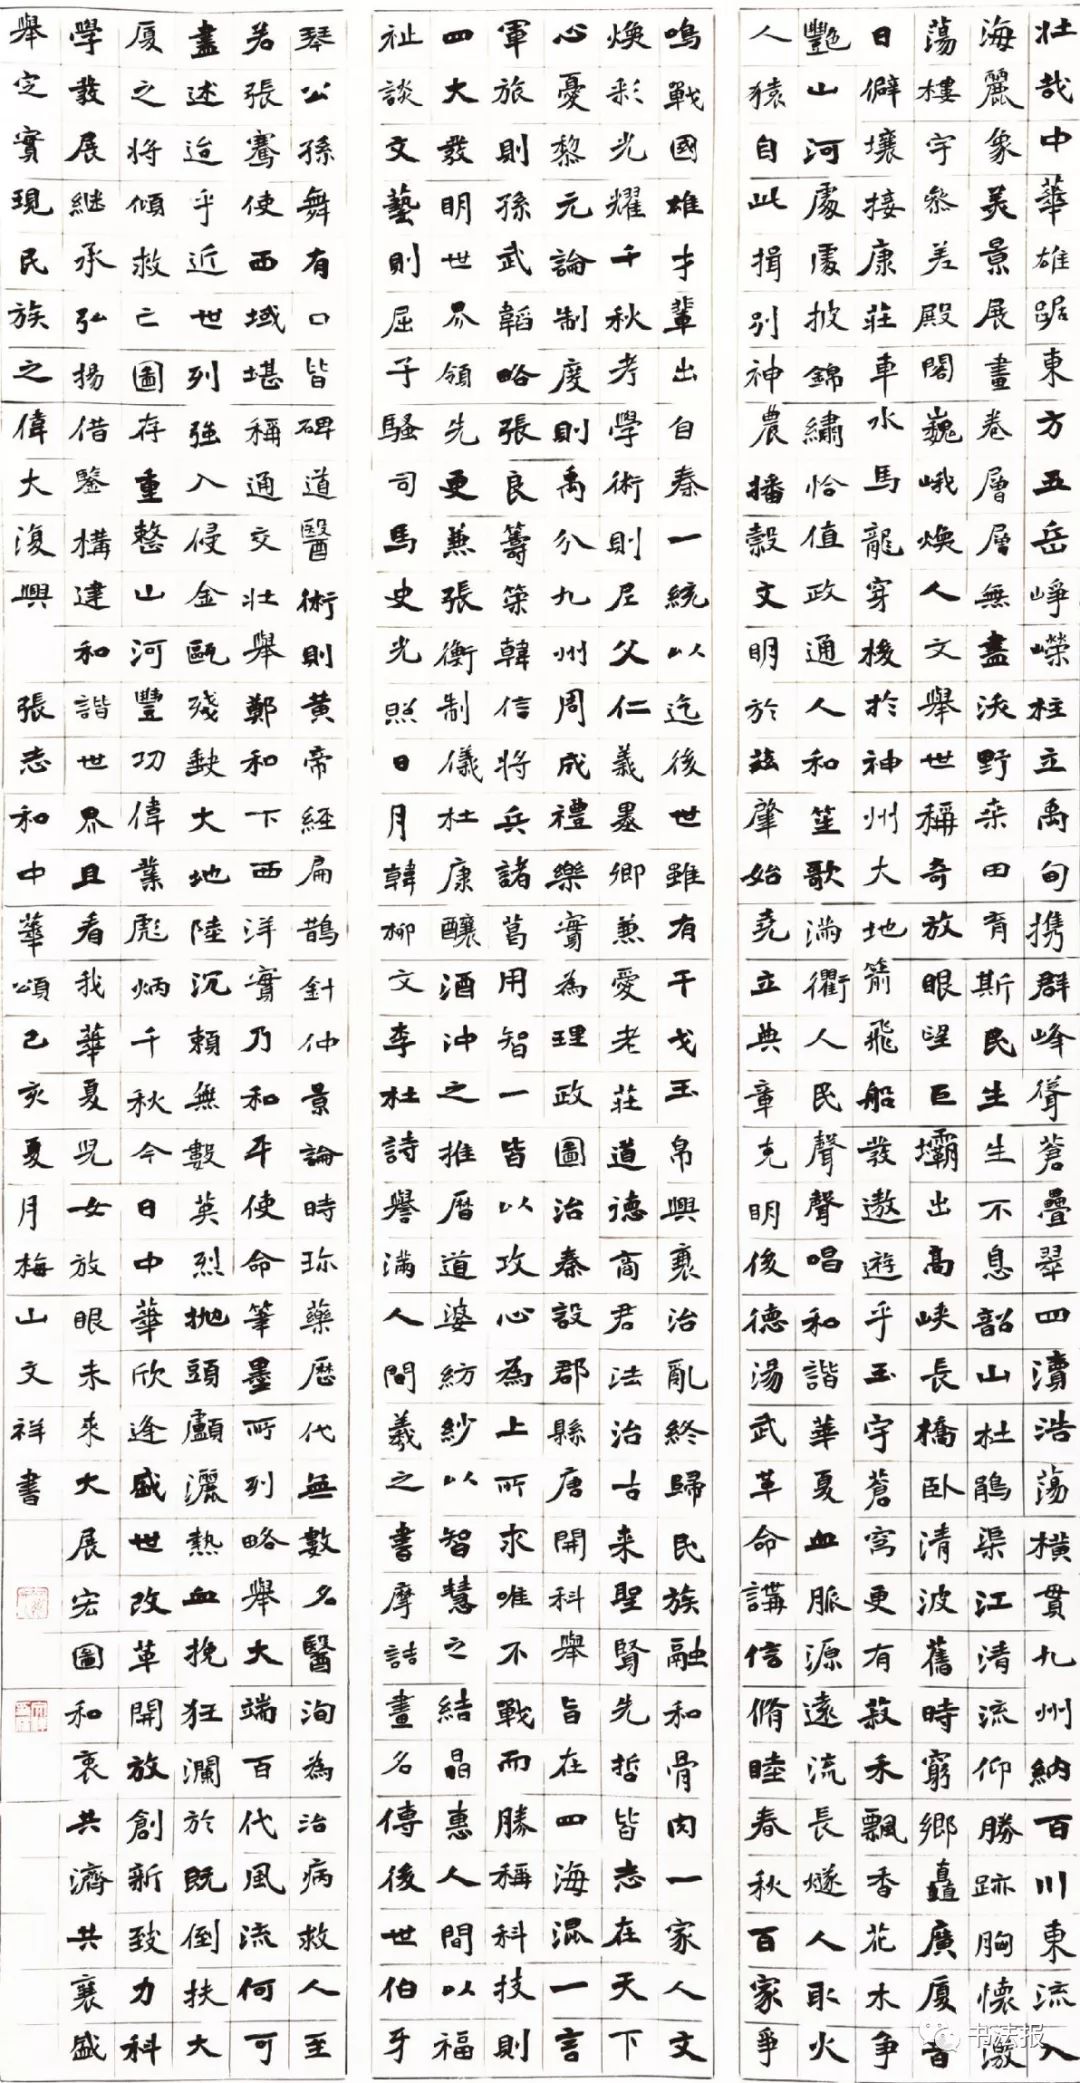 壯哉中華雄踞東方五岳崢嶸柱立禹甸攜群峰聳蒼疊翠四瀆浩蕩橫貫九州納百川東流入
海麗象美景展畫卷層層無盡沃野桑田育斯民生生不息韶山杜鵑渠江清流仰勝跡胸懷激
蕩樓宇參差殿閣巍峨煥人文舉世稱奇放眼望巨壩出高峽長橋臥清波舊時窮鄉矗廣廈昔
日僻壤接康莊車水馬龍穿梭於神州大地箭飛船發遨遊乎玉宇蒼穹更有菽禾飄香花木爭
艷山河處處披錦繡恰值政通人和笙歌滿衢人民聲聲唱和諧華夏血脈源遠流長燧人取火
人猿自此揖別神農播穀文明於茲肇始堯立典章克明後德湯武革命講信脩睦春秋百家爭
鳴戰國雄才輩出自秦一統以迄後世雖有干戈玉帛興衰治亂終歸民族融和骨肉一家人文
煥彩光耀千秋考學術則尼父仁義墨卿兼愛老莊道德商君法治古來聖賢先哲皆志在天下
心憂黎元論制度則禹分九州周成禮樂實為理政圖治秦設郡縣唐開科舉旨在四海混一言
軍旅則孫武韜略張良籌策韓信將兵諸葛用智一皆以攻心為上所求唯不戰而勝稱科技則
四大發明世界領先更兼張衡制儀杜康釀酒沖之推曆道婆紡紗以智慧之結晶惠人間以福
祉談文藝則屈子騷司馬史光照日月韓柳文李杜詩譽滿人間羲之書摩詰畫名傳後世伯牙
琴公孫舞有口皆碑道醫術則黃帝經扁鵲針仲景論時珍藥歷代無數名醫洵為治病救人至
若張騫使西域堪稱通交壯舉鄭和下西洋實乃和平使命筆墨所列略舉大端百代風流何可
盡述迨乎近世列強入侵金甌殘缺大地陸沉賴無數英烈拋頭顱灑熱血挽狂瀾於既倒扶大
廈之將傾救亡圖存重整山河豐功偉業彪炳千秋今日中華欣逢盛世改革開放創新致力科
學發展繼承弘揚借鑒構建和諧世界且看我華夏兒女放眼未來大展宏圖和衷共濟共襄盛
舉定實現民族之偉大復興 張志和中華頌己亥夏月梅山文祥書
书法报